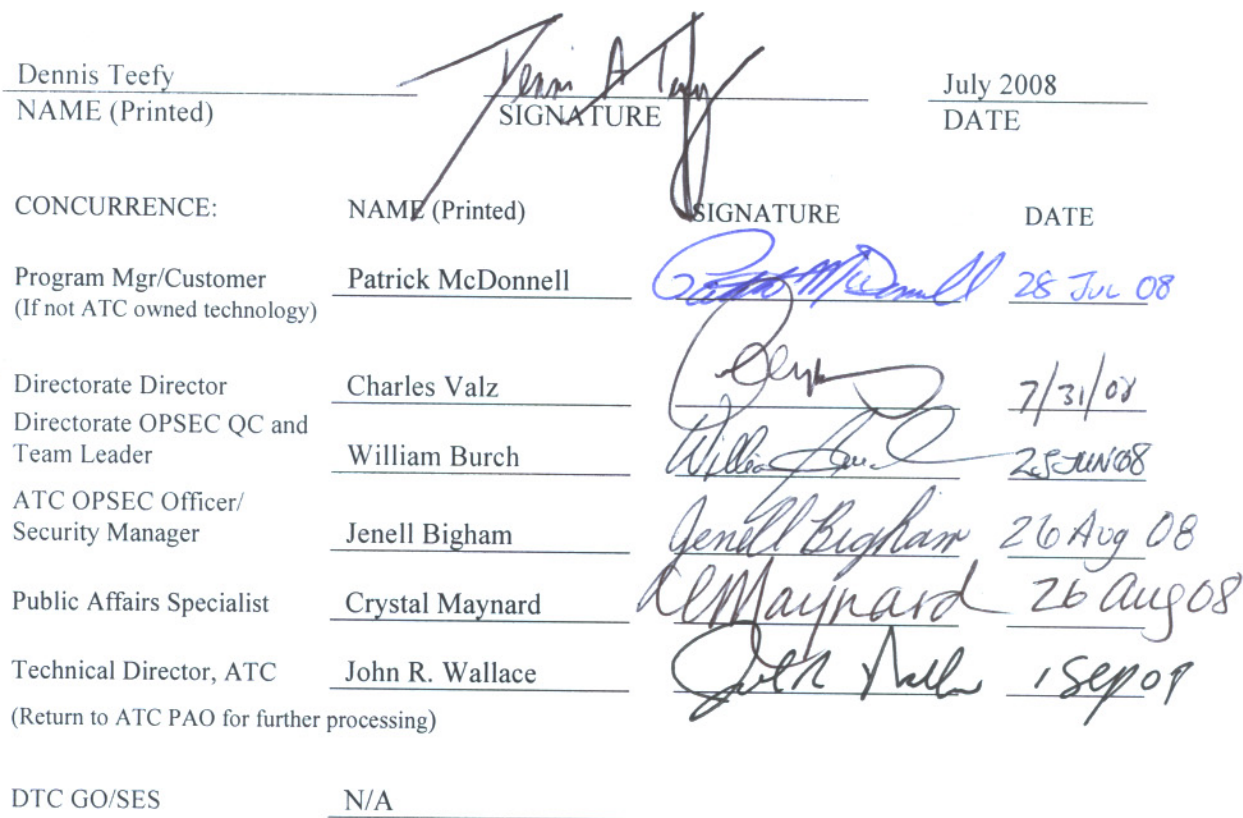 Dennis Teefy Dennis A Teefy July 2008
NAME (Printed) SIGNATURE DATE
CONCURRENCE: NAME (Printed) SIGNATURE DATE
Program Mgr/Customer Patrick McDonnell Patrick McDonnell 28 Jul 08
(If not ATC owned technology)
Directorate Director Charles Valz 7/31/08
Directorate OPSEC QC and
Team Leader William Burch William Burch JUN08
ATC OPSEC Officer/
Security Manager Jenell Bigham Jenell Bigham 26 Aug 08
Public Affairs Specialist Crystal Maynard CMaynard 26 Aug 08
Technical Director, ATC John R. Wallace John R Wallace 1 Sep
(Return to ATC PAO for further processing)
DTC GO/SES N/A